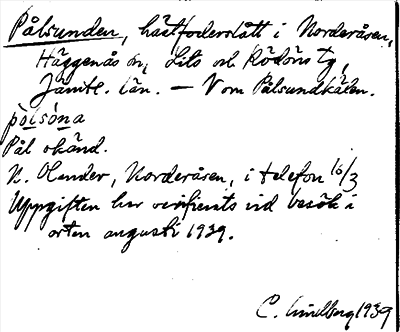 Pålsunden, hästfoderslått i Norderåsen,
Häggenås sn, Lits och Rödöns tg,
Jämtl. län. – V om Pålsundkälen.
pòlsóna
Pål okänd.
N. Olander, Norderåsen, i telefon 16/3
Uppgiften har verifierats vid besök i
orten augusti 1939.
C. Lindberg 1939